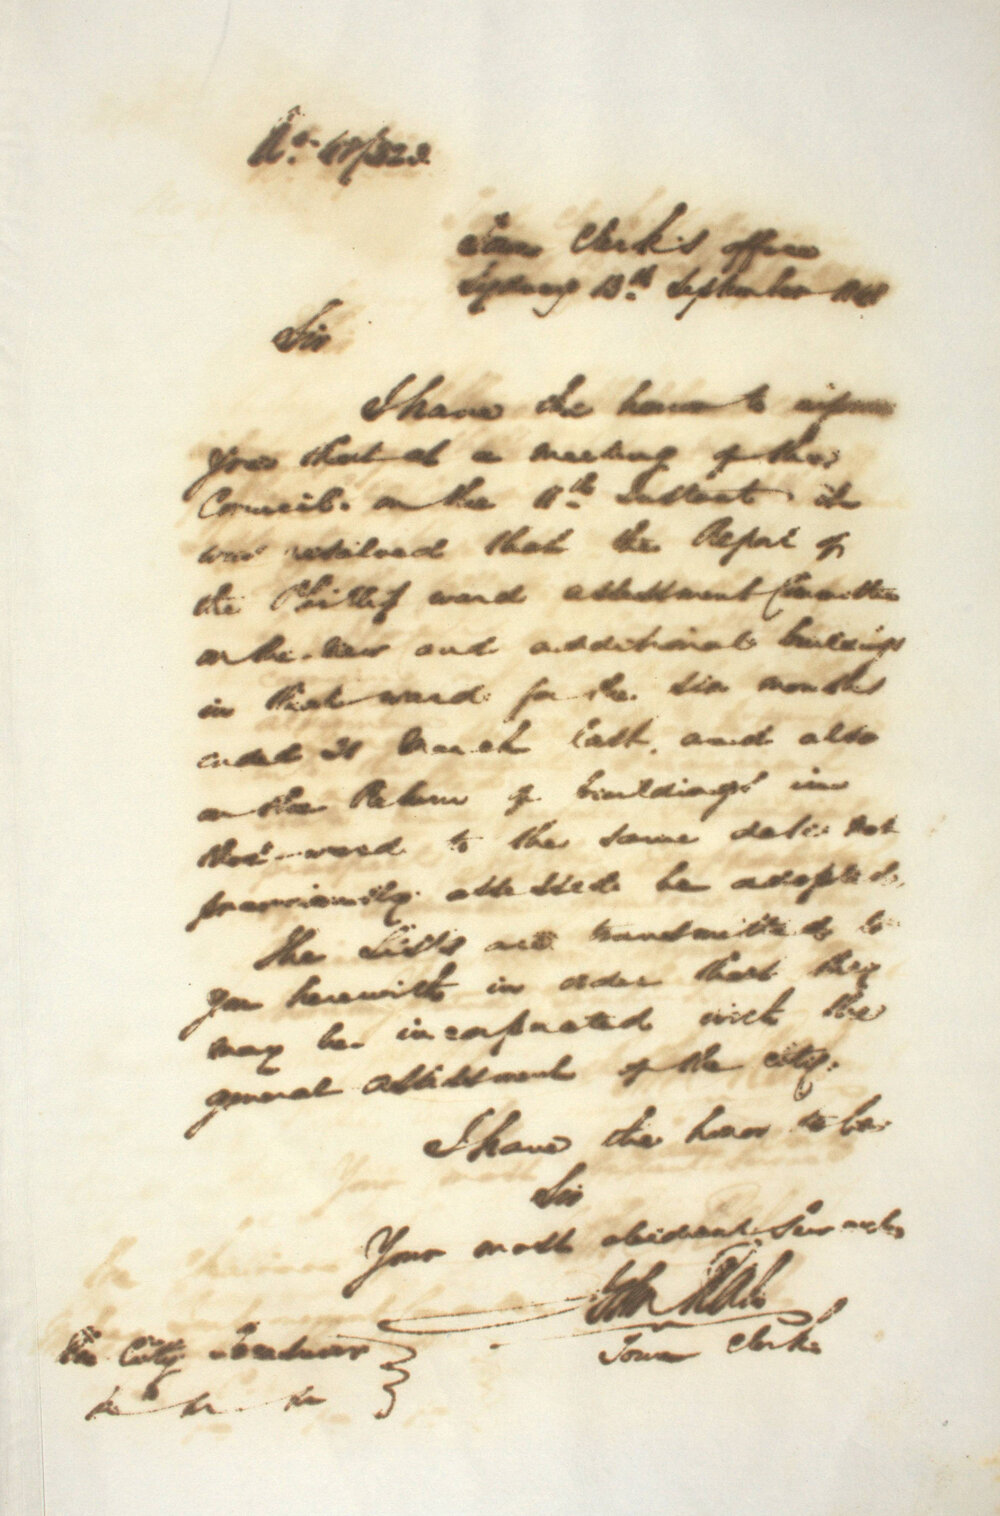 Town Clerk's office
Sydney 13th September 1848
Sir
I have the honor to inform
you that at a meeting of the
Council on the 11th Instant it
was resolved that the Report of
the Phillip ward assessment Committee
on the new and additional buildings
in that ward for the six months
ended 31 March last, and also
on the Return of buildings in
that ward to the same date not
previously assessed be adopted,
The Lists are transmitted to
you herewith in order that they
may be incorporated with the
general assessment of the city.
I have the honor to be
Sir
Your most obedient Servant
John Rae
Town Clerk
The City Treasurer